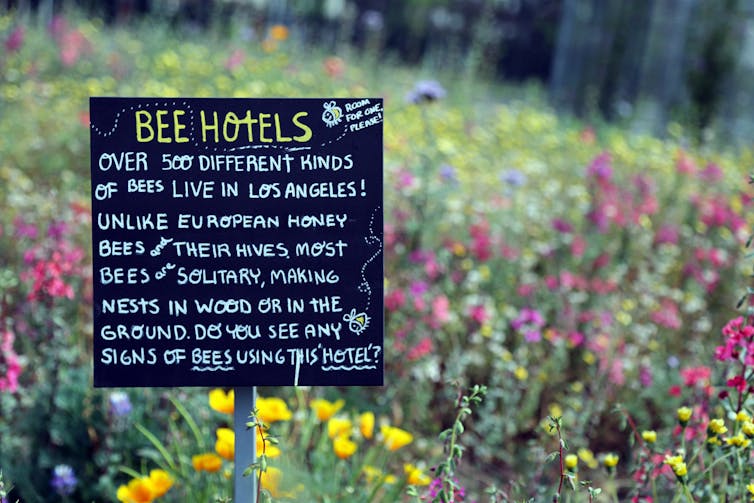 BEE HOTELS
ROOM
FOR ONE,
PLEASE!
OVER 500 DIFFERENT KINDS
OF BEES LIVE IN LOS ANGELES!
UNLIKE EUROPEAN HONEY
BEES and THEIR HIVES, MOST
BEES are SOLITARY, MAKING
NESTS IN WOOD OR IN THE
GROUND. DO YOU SEE ANY
SIGNS OF BEES USING THIS "HOTEL"?